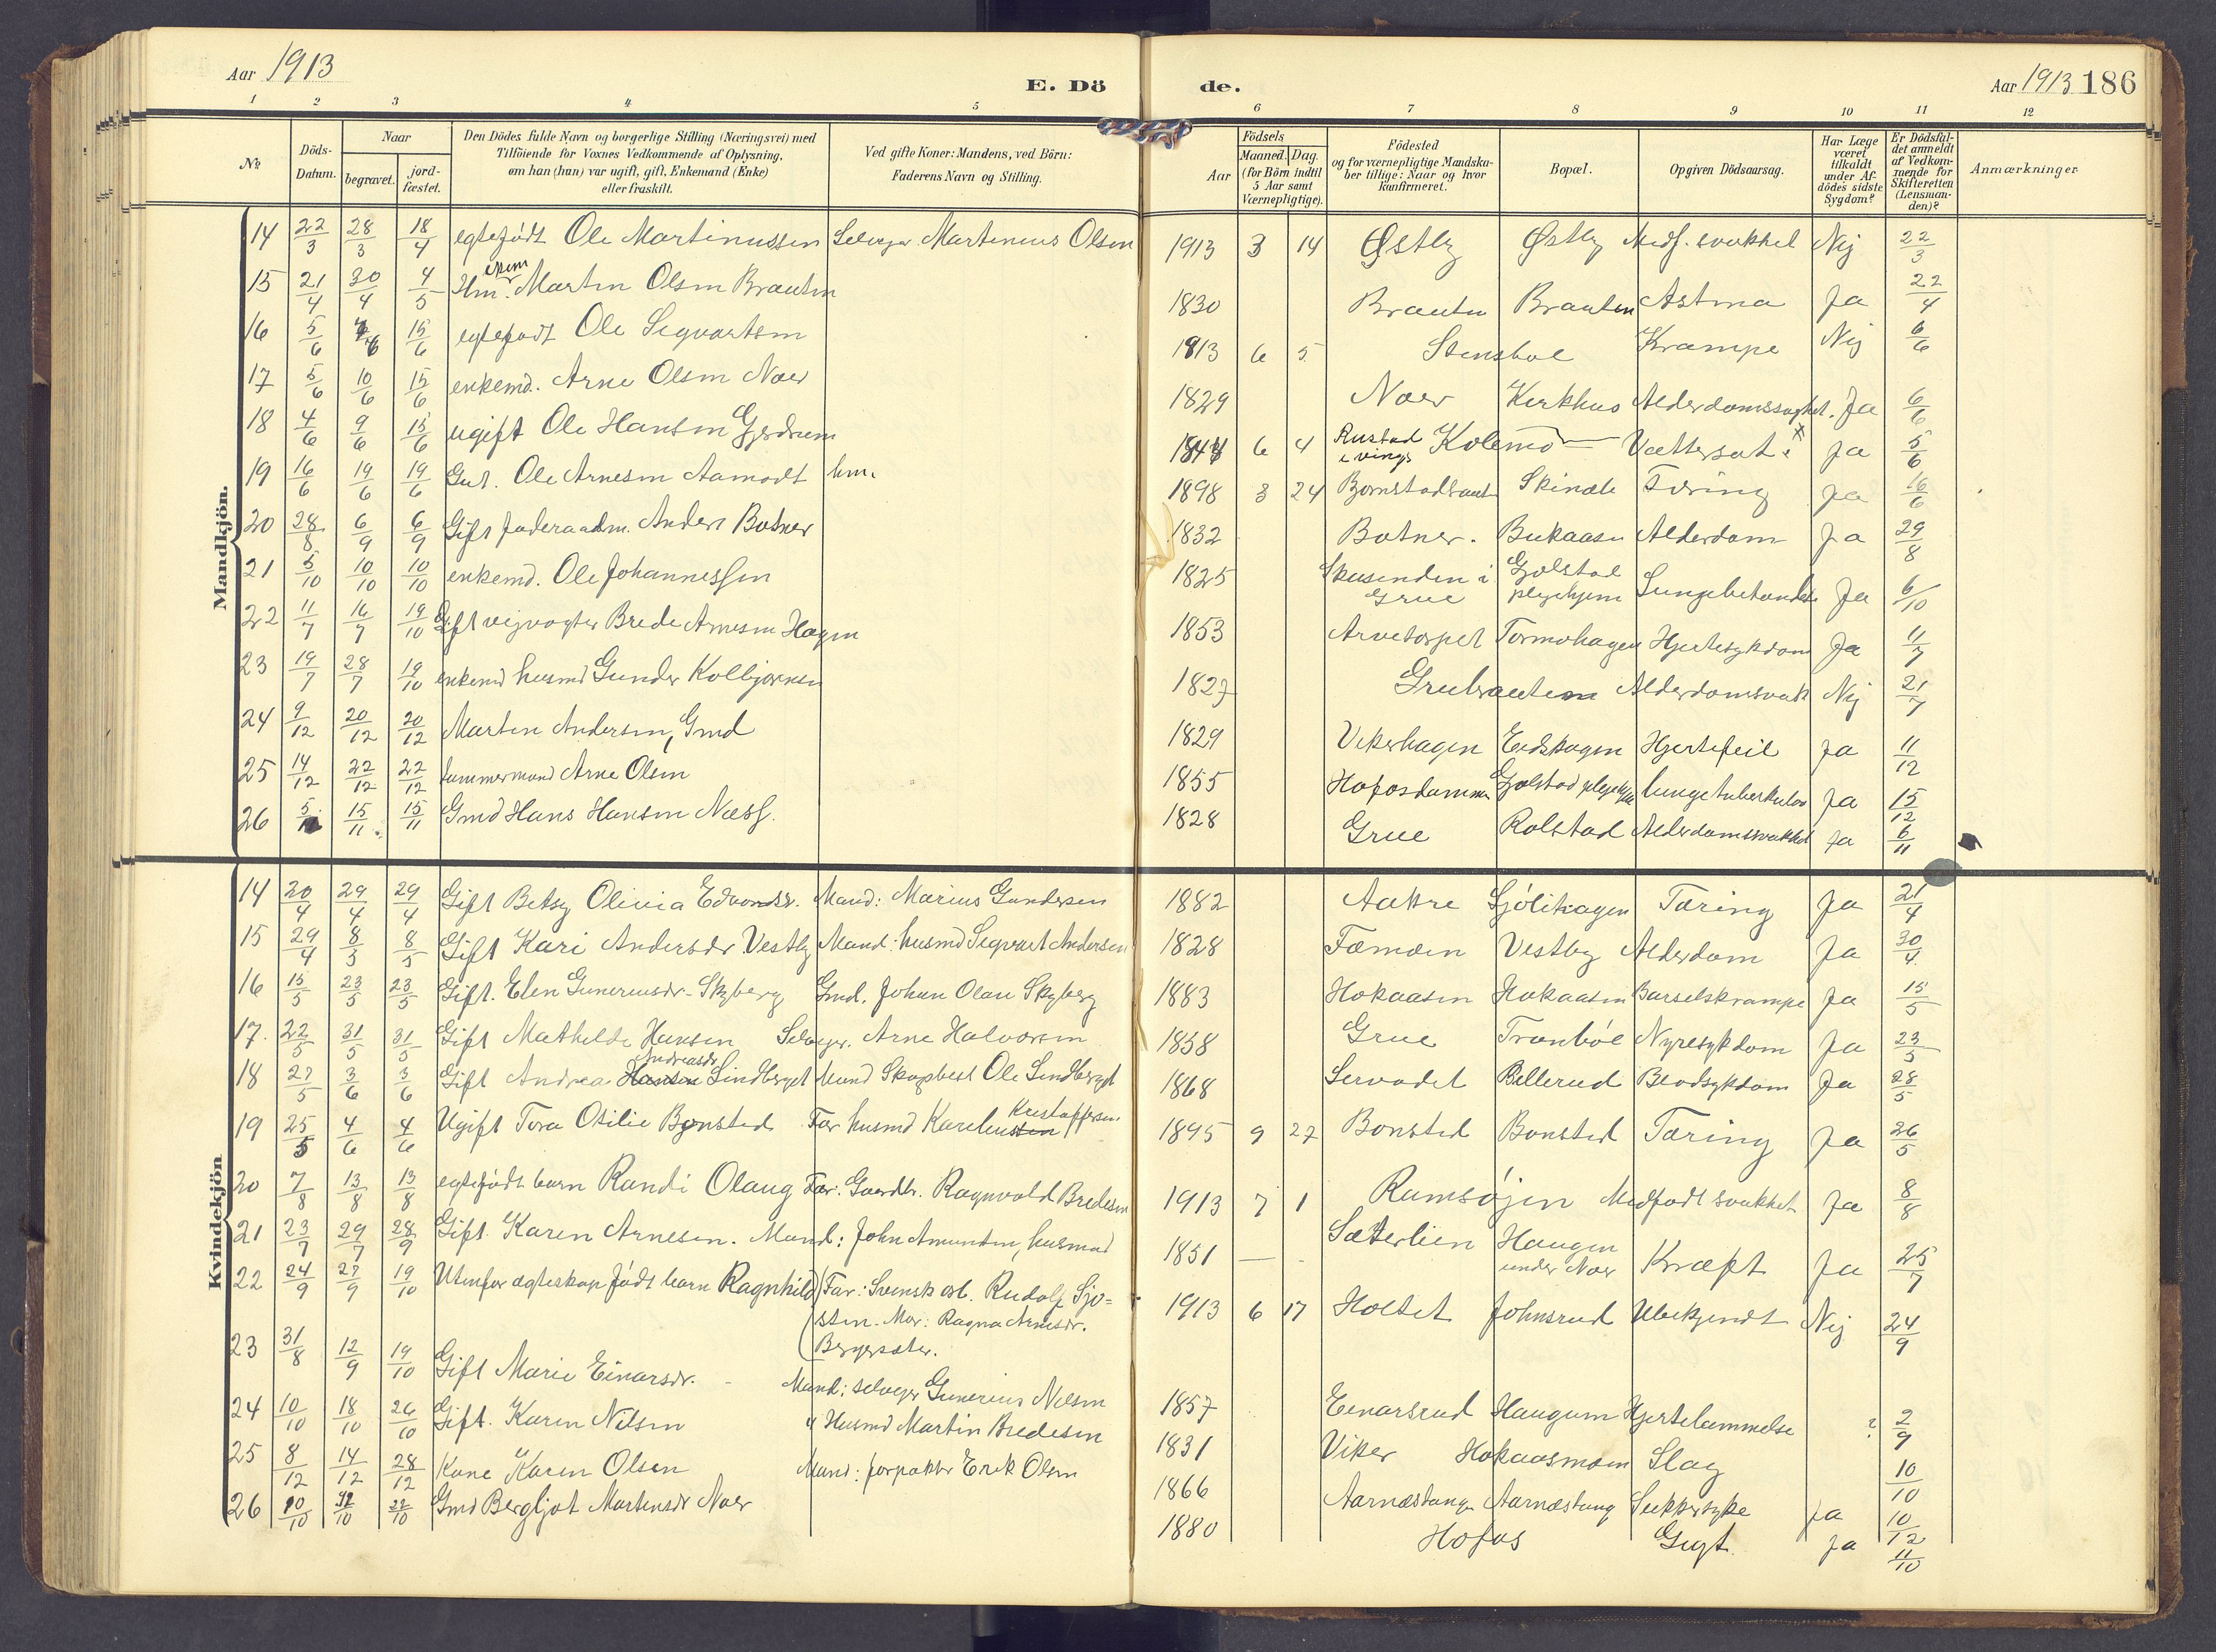 Aar 1913
E. Dö de.
Aar 1913 186
1 2 3 4 5 6 7 8 9 10 11 12
№
Döds-Datum.
Naar
begravet.
jord-fæstet.
Den Dödes fulde Navn og borgerlige Stilling (Næringsvei) med
Tilföiende for Voxnes Vedkommende af Oplysning,
om han (hun) var ugift, gift, Enkemand (Enke)
eller fraskilt.
Ved gifte Koner: Mandens, ved Börn:
Faderens Navn og Stilling.
Födsels
Aar
Maaned. Dag.
(for Börn indtil
5 Aar samt
Værnepligtige).
Födested
og for værnepligtige Mandska-
ber tillige: Naar og hvor
konfirmeret.
Bopæl.
Opgiven Dödsaarsag.
Har Læge
været
tilkaldt
under Af-
dödes sidste
Sygdom?
Er Dödsfal-
det anmeldt
af Vedkom-
mende for
Skifteretten
(Lensman-
den)?
Anmærkninger
Mandkjön.
14 22/3 28/3 18/4 egtefödt Ole Martinussen Selveyer Martinius Olsen 1913 3 14 Østby Østby Medf. svakhet Nej 22/3
15 21/4 30/4 4/5 Hm. Martin Olsen Brauten 1830 Brauten Brauten Astma Ja 22/4
16 5/6 15/6 egtefödt Ole Segvartsen 1913 6 5 Krampe Nej 6/6
17 5/6 10/6 15/6 enkemd. Arne Olsen Noer 1829 Noer Kirkhus Ja 6/6
18 4/6 9/6 15/6 ugift Ole Hansen Gjerdrum 6 4 Rustad i vings Kolsmo Vattersot Ja 5/6
19 16/6 19/6 19/6 Gut. Ole Arnesen Aamodt hm. 1898 3 24 Tæring Ja 16/6
20 28/8 6/9 6/9 Gift föderaadm. Anders Botner 1832 Botner. Bukaasen Alderdom Ja 29/8
21 5/10 10/10 10/10 enkemd. Ole Johannessen 1825 Skasenden i Grue Gjølstad plejehjem Ja 6/10
22 11/7 16/7 19/10 Gift vejvogter Brede Arnesen Hagen 1853 Arnetorpet Tormohagen Hjertesykdom Ja 11/7
23 19/7 28/7 19/10 enkemd husmd Gunder Kolbjørnsen 1827 Grubrauten Alderdomsvak Nej 21/7
24 9/12 20/12 20/12 Martin Andersen, Gmd 1829 Vikerhagen Eidskogen Hjertefeil Ja 11/12
25 14/12 22/12 22/12 tømmermand Arne Olsen 1855 Hofosdammen Gjølstad Ja 15/12
26 15/11 15/11 Gmd Hans Hansen Næss. 1828 Grue Rolstad Alderdomssvakhet Ja 6/11
Kvindekjön
14 20/4 29/4 29/4 Gift Betsy Olivia Edvardsdr. Mand: Marius Gundersen 1882 Aakre Sjölihagen Tæring Ja 21/4
15 29/4 8/5 8/5 Gift Kari Andersdr Vestby Mand: husmd Segvart Andersen 1828 Fæmoen Vestby Alderdom Ja 30/4
16 15/5 23/5 23/5 Gift. Elen Gunerusdr. Skyberg Gmd. Johan Olsen Skyberg 1883 Hokaasen Hokaasen Barselskrampe Ja 15/5
17. 22/5 31/5 31/5 Gift Mathilde Hansen Selveyer. Arne Halvorsen 1858 Grue Tranböl Nyresykdom Ja 23/5
18 27/5 3/6 3/6 Gift Andrea Hansen Andreasdr Lindberget Mand Skogbest Ole Lindberget 1868 Servadet Billerud Blodsykdom Ja 28/5
19 25/5 4/6 4/6 Ugift Tora Otilie Bonsted Far husmd Kareliussen Kristoffersen 1895 9 27 Bonsted Bonsted Tæring Ja 26/5
20 7/8 13/8 13/8 egtefödt barn Randi Olaug Far: Gaardbr. Ragnvald Bredesen 1913 7 1 Ramsöjen Medfödt svakhet Ja 8/8
21 23/7 29/7 28/9 Gift. Karen Arnesen. Mand: John Amundsen, husmand 1851 Sæterlien Haugen under Noer Kræft Ja 25/7
22 24/9 27/9 19/10 Utenfor ægteskap födt barn Ragnhild (Far: Svensk arb. Rudolf Sjö-
sten. Mor: Ragna Arnesdr.
Bergersæter. 1913 6 17 Holtet Johnsrud Ubekjendt Nej 24/9
23 31/8 12/9 19/10 Gift Marie Einarsdr. Mand: selveyer Gunerius Nilsen 1857 Einarsrud Haugum Hjertelammelse ? 2/9
24 10/10 18/10 26/10 Gift. Karen Nilsen " Husmd Martin Bredesen 1831 Viker Hokaasmoen Slag 10/10
25 8/12 14/12 28/12 Kone Karen Olsen Mand: forpakter Erik Olsen 1866 Aarnæstangen Aarnæstang Sukkersyke Ja 10/12
26 10/10 Gmd Bergljot Martinsdr Noer 1880 Hofos Gigt. Ja 11/10